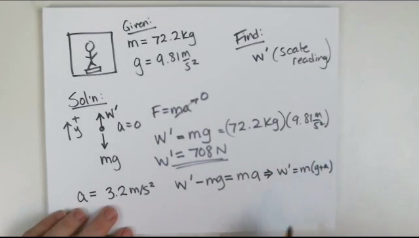 Given:
m = 72.2 kg
g = 9.81 m/s²
Find:
w' (scale reading)
Sol'n:
+
y
w'
a = 0
mg
F = ma → 0
w' = mg = (72.2 kg)(9.81 m/s²)
w' = 708 N
a = 3.2 m/s²
w' - mg = ma ⇒ w' = m(g+a)